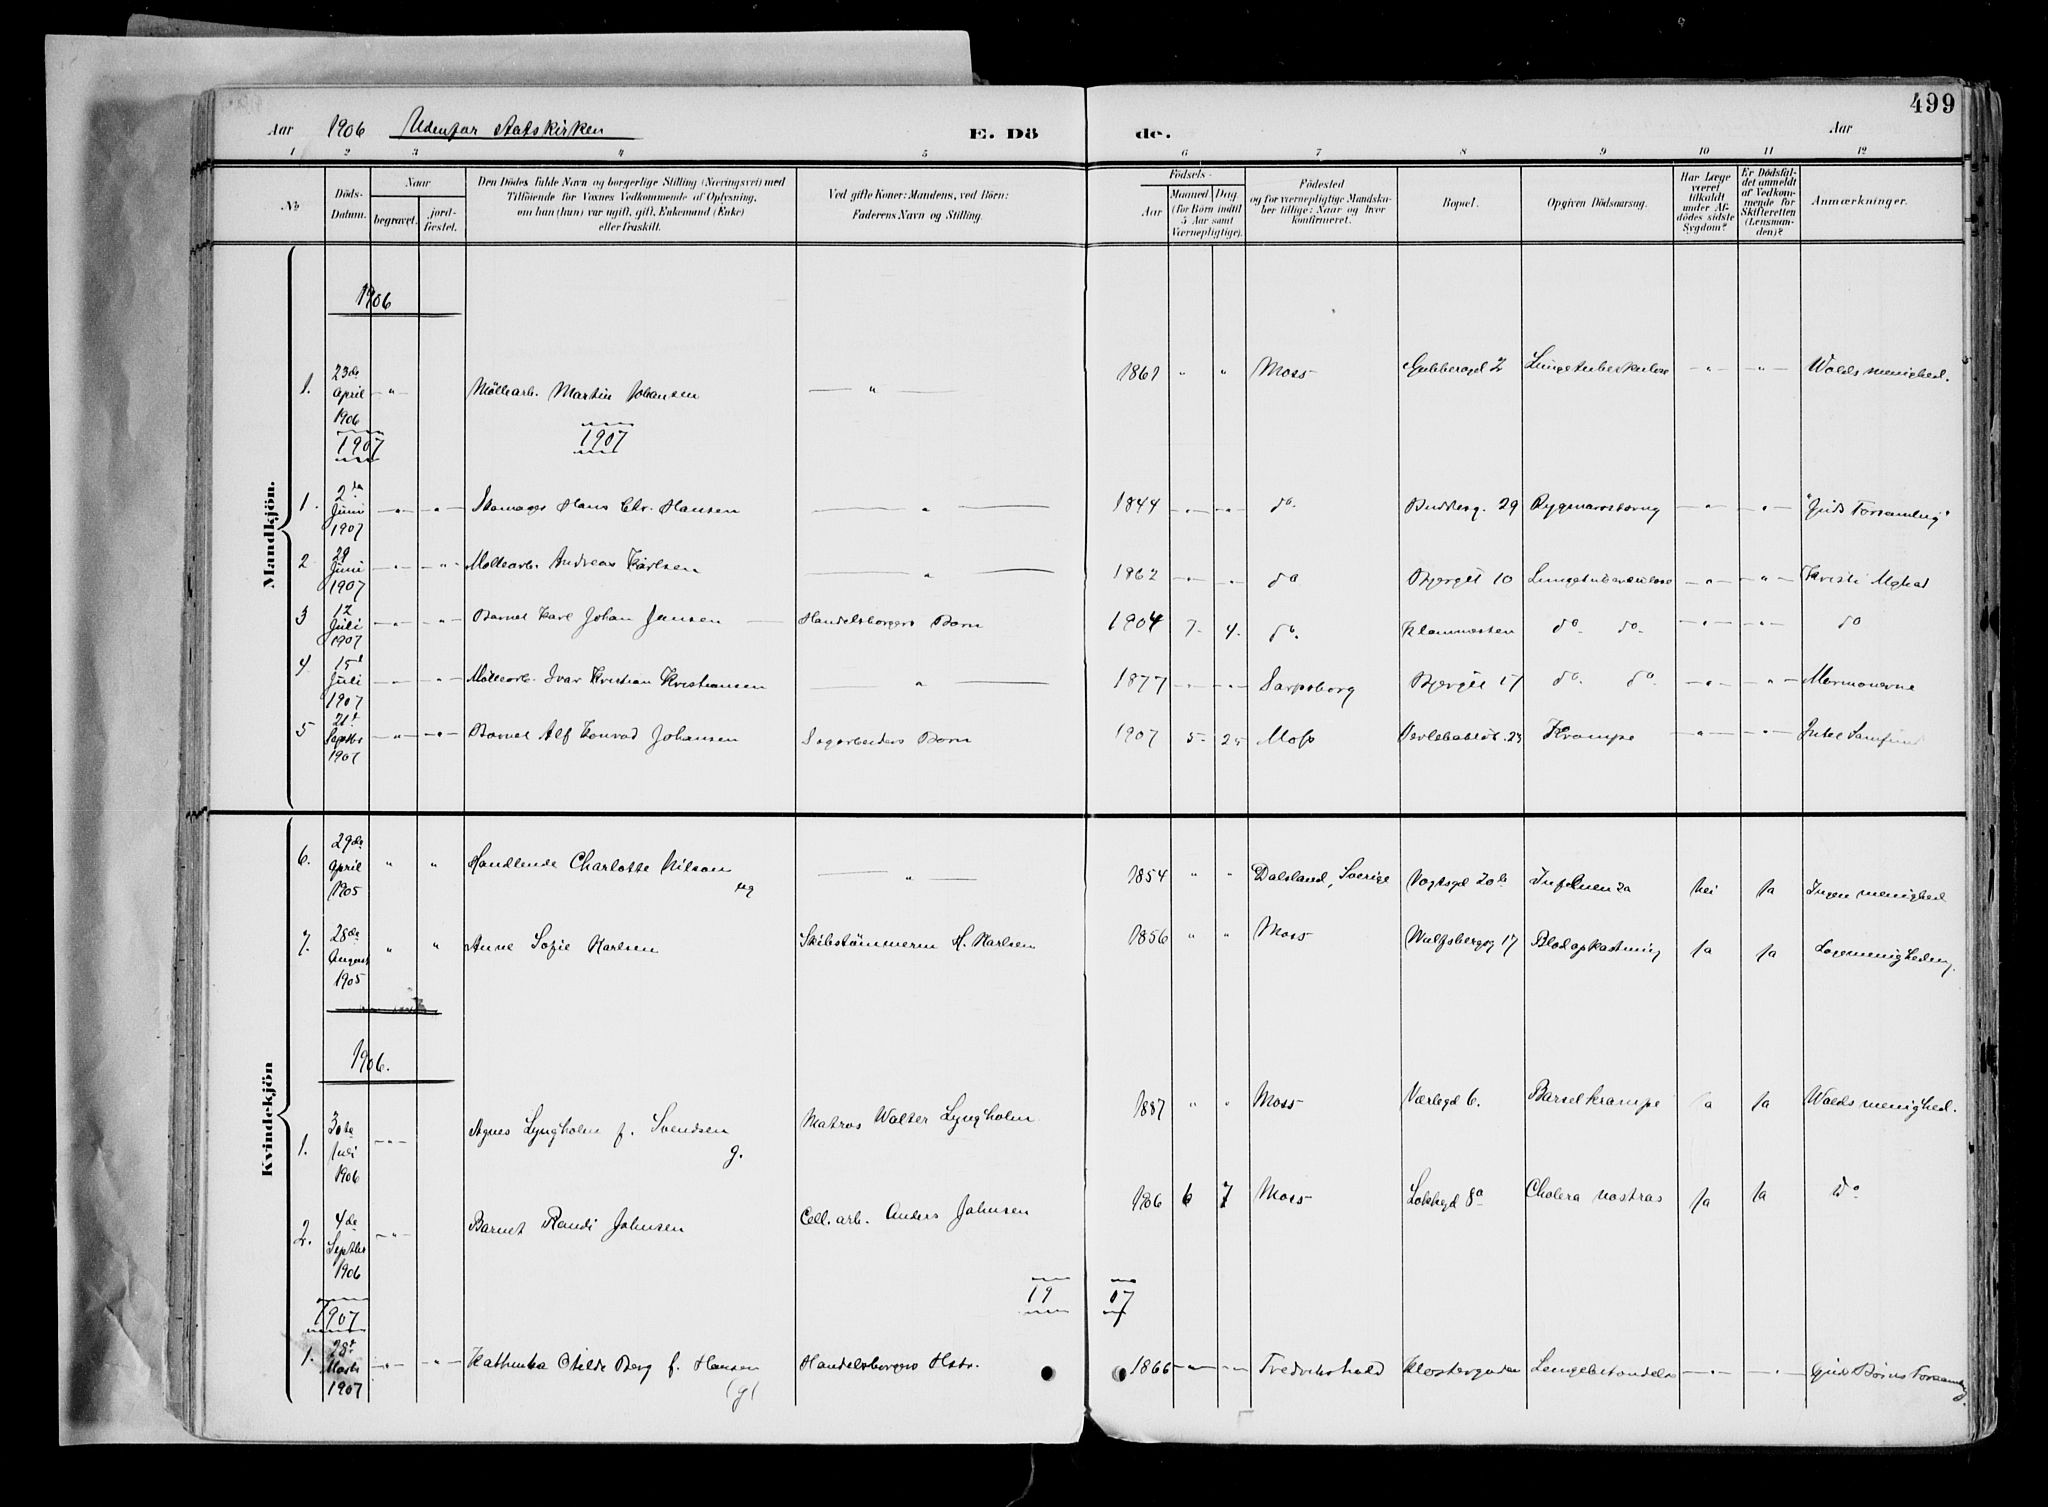 499
Aar 1906 Udenfor Statskirken E. Dö de. Aar
1 2 3 4 5 6 7 8 9 10 11 12
No
Döds-Datum.
Naar
begravet.
jord-fæstet.
Den Dödes fulde Navn og borgerlige Stilling (Næringsvei) med
Tilföiende for Voxnes Vedkommende af Oplysning,
om han (hun) var ugift, gift, Enkemand (Enke)
eller fraskilt.
Ved gifte Koner: Mandens, ved Börn:
Faderens Navn og Stilling.
Födsels-
Aar
Maaned Dag
(for Börn indtil
5 Aar samt
Værnepligtige).
Födested
og for værnepligtige Mandska-
ber tillige: Naar og hvor
konfirmeret.
Bopæl.
Opgiven Dödsaarsag.
Har Læge
været
tilkaldt
under Af-
dödes sidste
Sygdom?
Er Dödsfal-
det anmeldt
af Vedkom-
mende for
Skifteretten
(Lensman-
den)?
Anmærkninger.
Mandkjön.
1906
1. 23de April 1906 - " - Möllearb. Martin Johansen — " — 1861 " " Moss Gubberogd 2 Lungetuberkulose - " - - " - Walds menighed.
1907 1907
1. 2den Juni 1907 - " - - " - Skomager Hans Chr. Hansen — " — 1844 - " - - " - do. Budberg. 29 Rygmarvstæring - " - " "Guds Forsamling"
2 29 Juni 1907 - " - - " - Möllearb. Andreas Karlsen — " — 1862 - " - " do Bjerget 10 Lungetuberculose - " - " Kristi Mghed
3 12 Juli 1907 - " - - " - Barnet Karl Johan Jensen — Handelsborgers Barn 1904 7. 4. do. Klommesten do. do. - " - - " - do
4 15d Juli 1907 - " - - " - Möllearb. Ivar Kristian Kristiansen — " — 1877 - " - - " - Sarpsborg Bjerget 17 do. do. - " - - " - Mormonerne
5 21d Septbr 1907 - " - - " - Barnet Alf Konrad Johansen Sagarbeiders Barn 1907 5 - 25 Moss 25 Krampe - " - - " - Intet Samfund
Kvindekjön
6. 29de April 1905 " " Handlende Charlotte Nilson ug — " — 1854 " " Dalsland, Sverige Vogtsgd 20b Influenza Nei Ja Ingen menighed
7. 28de August 1905 " " Anne Sofie Karlsen Skibstömmerm H. Karlsen 1856 " " Moss Wulfsbergsg 17 Blodopkastning Ja Ja
1906.
1. 30te Juli 1906 - " - Agnes Lyngholm f. Svendsen g. Matros Walter Lyngholm 1887 " " Moss Værlegd 6. Barselkrampe Ja Ja Walds menighed.
2. 4de Septbr 1906 - " - Barnet Randi Johnsen Cell. arb. Anders Johnsen 1906 6 7 Moss Lokkegd 8a Cholera nostras Ja Ja do
1907 19 07
1. 28d Marts 1907 - " - - " - Kathinka Otilde Berg f. Hansen (g) Handelsborgers Hstr. 1866 - " - - " - Fredrikshald Klostergaden - " - - " - Guds Börns Forsamlig.